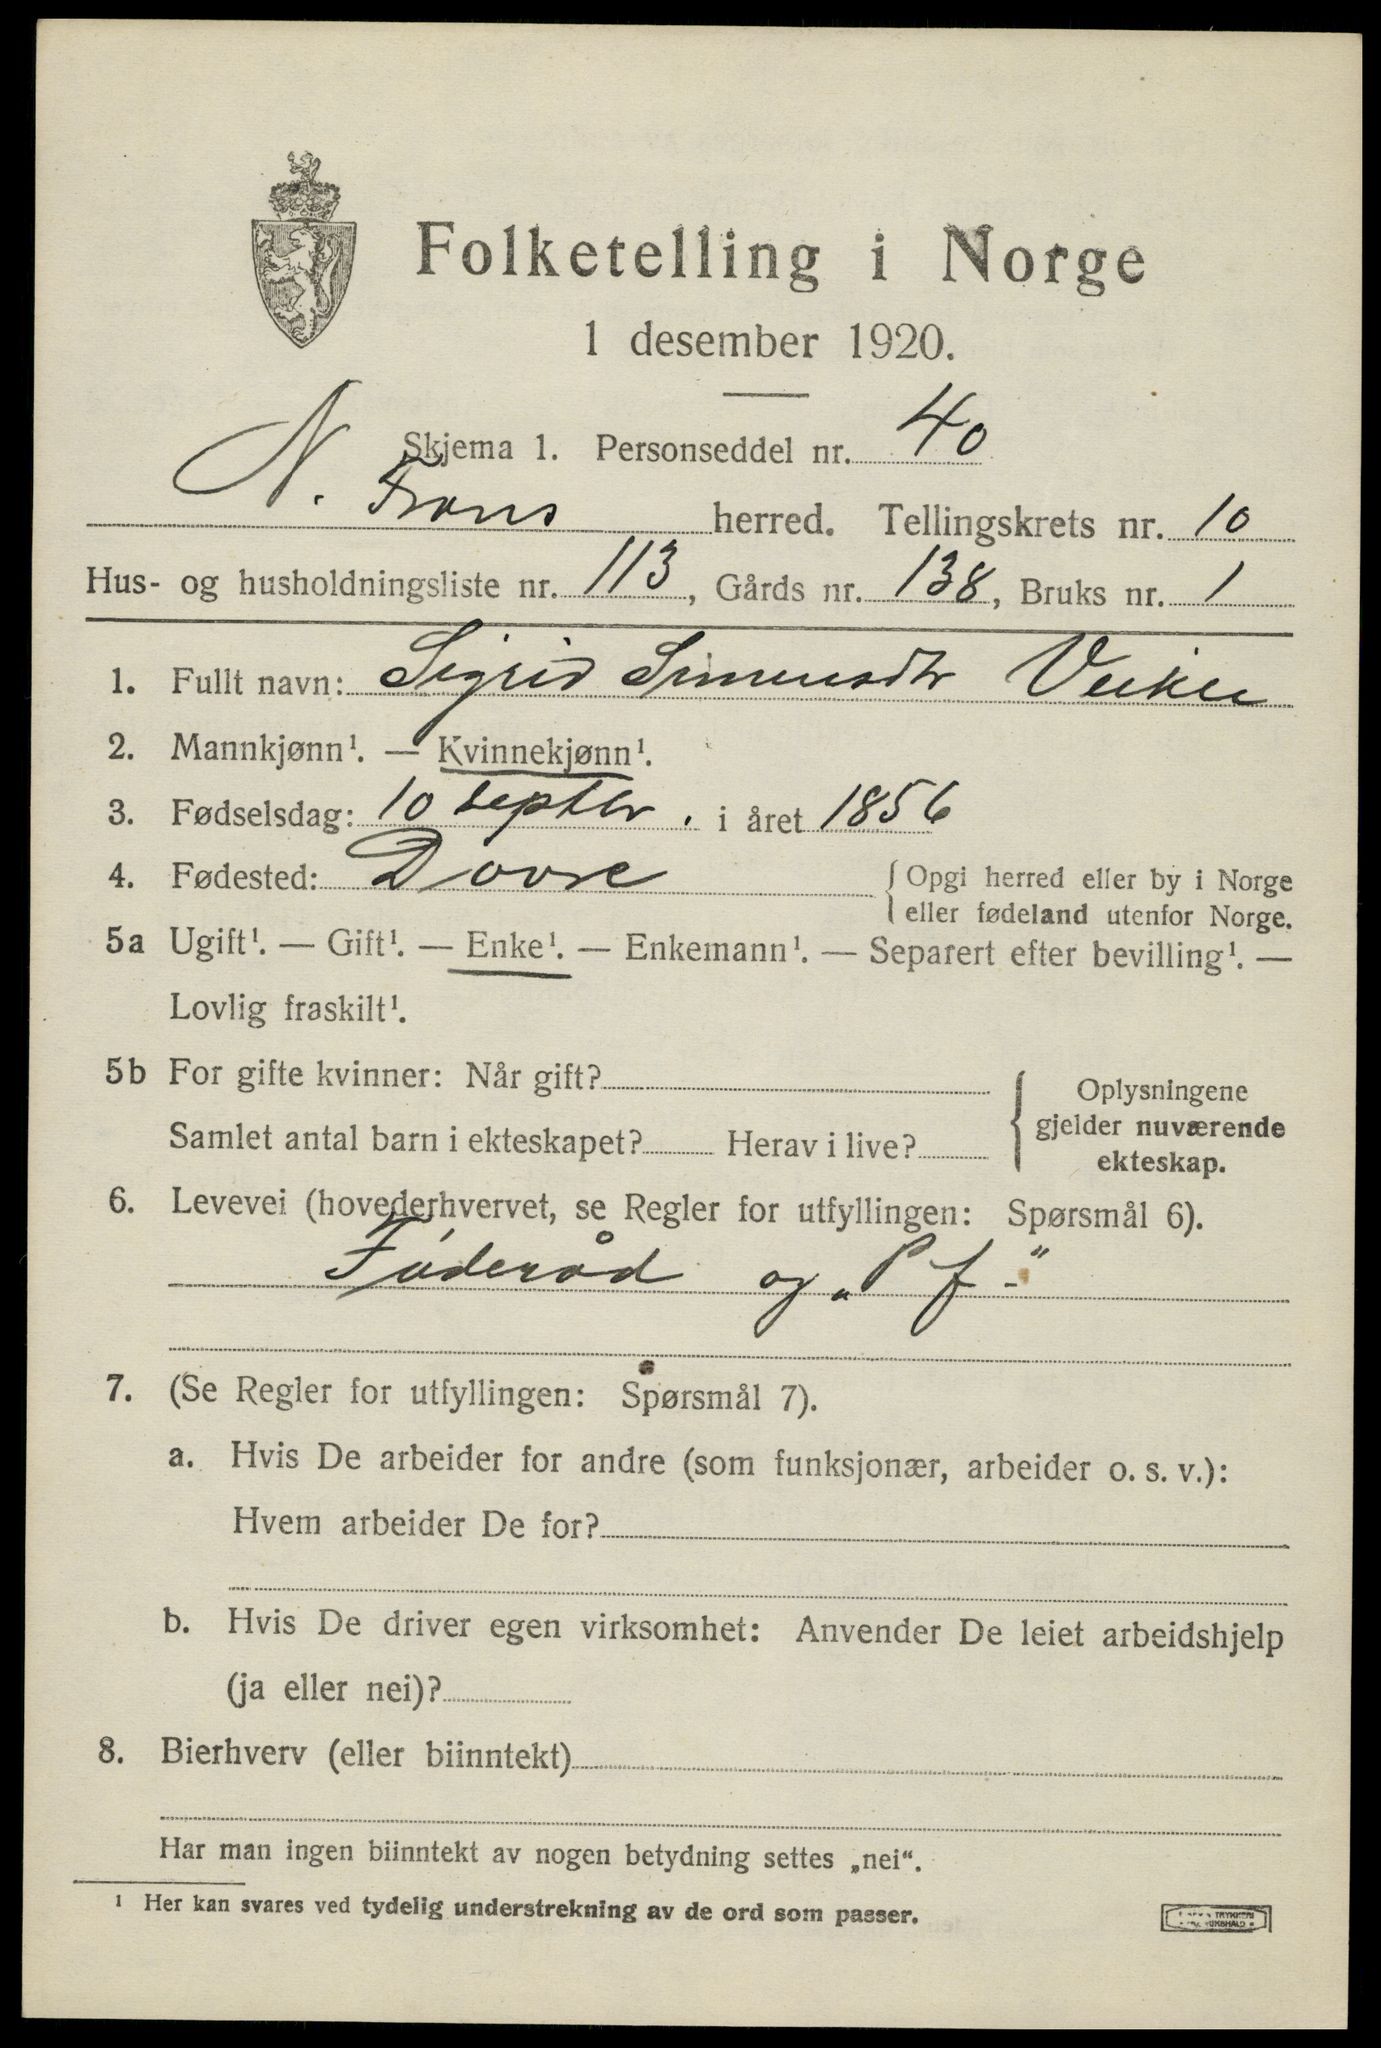 Folketelling i Norge
1 desember 1920.
Skjema 1. Personseddel nr. 40
N. Frons herred. Tellingskrets nr. 10
Hus- og husholdningsliste nr. 113, Gårds nr. 138, Bruks nr. 1
1. Fullt navn: Sigrid Simensdtr
2. Mannkjønn¹. — Kvinnekjønn¹.
3. Fødselsdag: 10 septbr. i året 1856
4. Fødested: Dovre { Opgi herred eller by i Norge
eller fødeland utenfor Norge.
5a Ugift¹. — Gift¹. — Enke¹. — Enkemann¹. — Separert efter bevilling¹. —
Lovlig fraskilt¹.
5b For gifte kvinner: Når gift?
Samlet antal barn i ekteskapet? Herav i live?
{ Oplysningene
gjelder nuværende
ekteskap.
6. Levevei (hovederhvervet, se Regler for utfyllingen: Spørsmål 6).
Føderåd og „P f-"
7. (Se Regler for utfyllingen: Spørsmål 7).
a. Hvis De arbeider for andre (som funksjonær, arbeider o. s. v.):
Hvem arbeider De for?
b. Hvis De driver egen virksomhet: Anvender De leiet arbeidshjelp
(ja eller nei)?
8. Bierhverv (eller biinntekt)
Har man ingen biinntekt av nogen betydning settes „nei“.
¹ Her kan svares ved tydelig understrekning av de ord som passer.